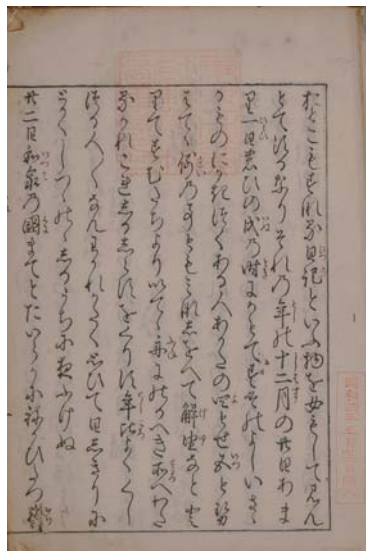 おとこもすなる日記といふ物を女もして見ん
とてするなりそれの年の十二月の廿日あま
り一日のひの戌の時にかとてすそのよしいさゝ
かものにかきつくある人あかたの四とせ五とせ
はてゝ例の事ともみなしをへて解由なとと
りてすむたちよりいてゝ舟にのるへき所へわた
るかれこれしるしらぬをくりす年比よくくし
つる人〳〵なんわかれかたく思ひて日しきりに
とかくしつゝのゝしるうちに夜ふけぬ
廿二日和泉の國まてとたいらかにねかひたつ藤